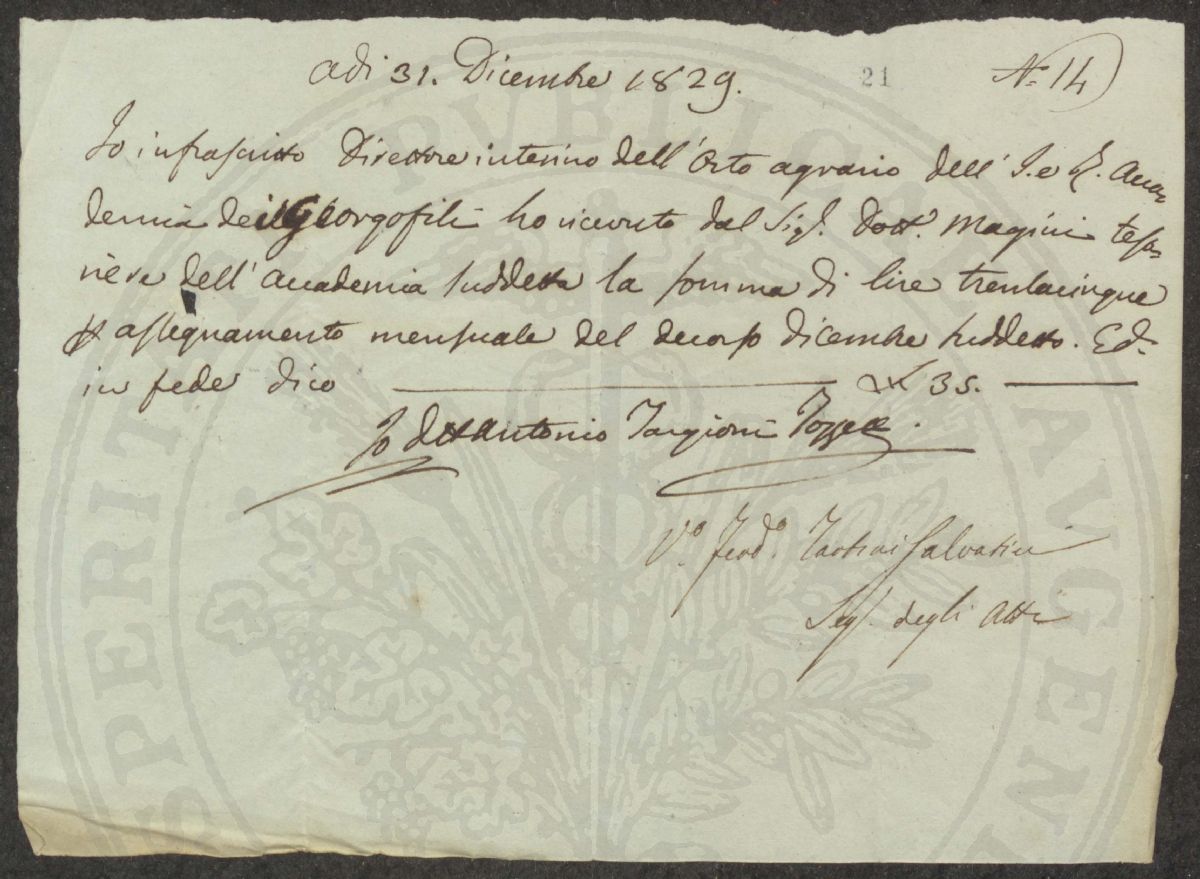 adi 31. Dicembre 1829.
21
N.° 14
Io infrascritto Direttore interino dell'Orto agrario dell'I. e R. Acca=
demia dei Georgofili ho ricevuto dal Sig.r Dott.r Magini teso=
riere dell'Accademia suddetta la somma di lire trentacinque
p assegnamento mensuale del decorso Dicembre suddetto. Ed
in fede dico ——— £ 35. ———
Io Dott Antonio Targioni Tozzetti.
V.° Ferd.° Tartini Salvatici
Seg.r degli Atti
PROSPERITATI PUBLICAE AVGENDAE